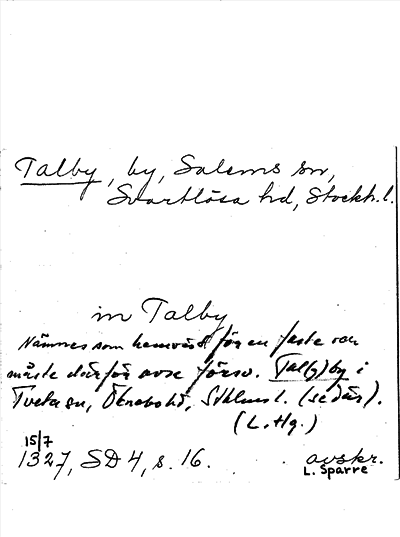 Talby, by, Salems sn,
Svartlösa hd, Stockh.l.
in Talby
Nämnes som hemvist för en faste och
måste därför avse försv. Tal(g)by i
Tveta sn, Öknebo hd, Sthlms l. (se där).
(L. Hg.)
15/7
1327, SD 4, s. 16.
avskr.
L. Sparre